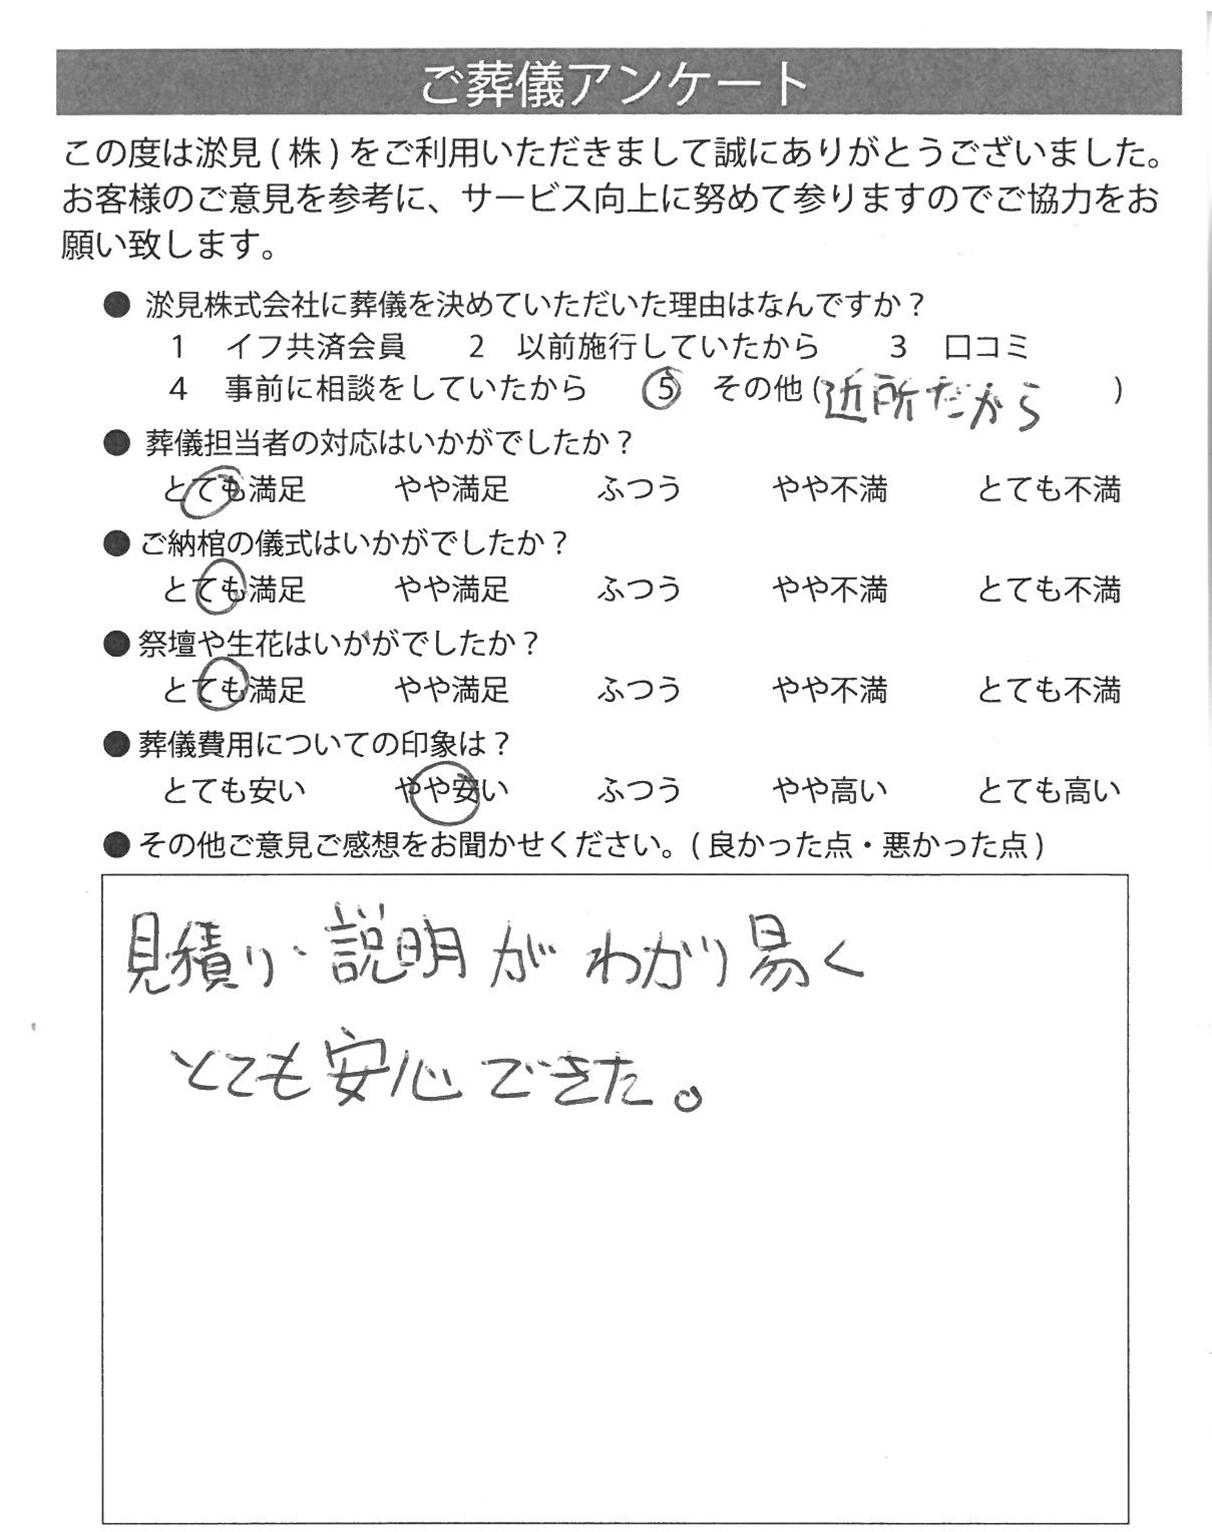 ご葬儀アンケート
この度は淤見(株)をご利用いただきまして誠にありがとうございました。
お客様のご意見を参考に、サービス向上に努めて参りますのでご協力をお
願い致します。
● 淤見株式会社に葬儀を決めていただいた理由はなんですか？
1 イフ共済会員 2 以前施行していたから 3 口コミ
4 事前に相談をしていたから ⑤ その他(近所だから)
● 葬儀担当者の対応はいかがでしたか？
とても満足 やや満足 ふつう やや不満 とても不満
● ご納棺の儀式はいかがでしたか？
とても満足 やや満足 ふつう やや不満 とても不満
● 祭壇や生花はいかがでしたか？
とても満足 やや満足 ふつう やや不満 とても不満
● 葬儀費用についての印象は？
とても安い やや安い ふつう やや高い とても高い
● その他ご意見ご感想をお聞かせください。(良かった点・悪かった点)
見積り・説明がわかり易く
とても安心できた。